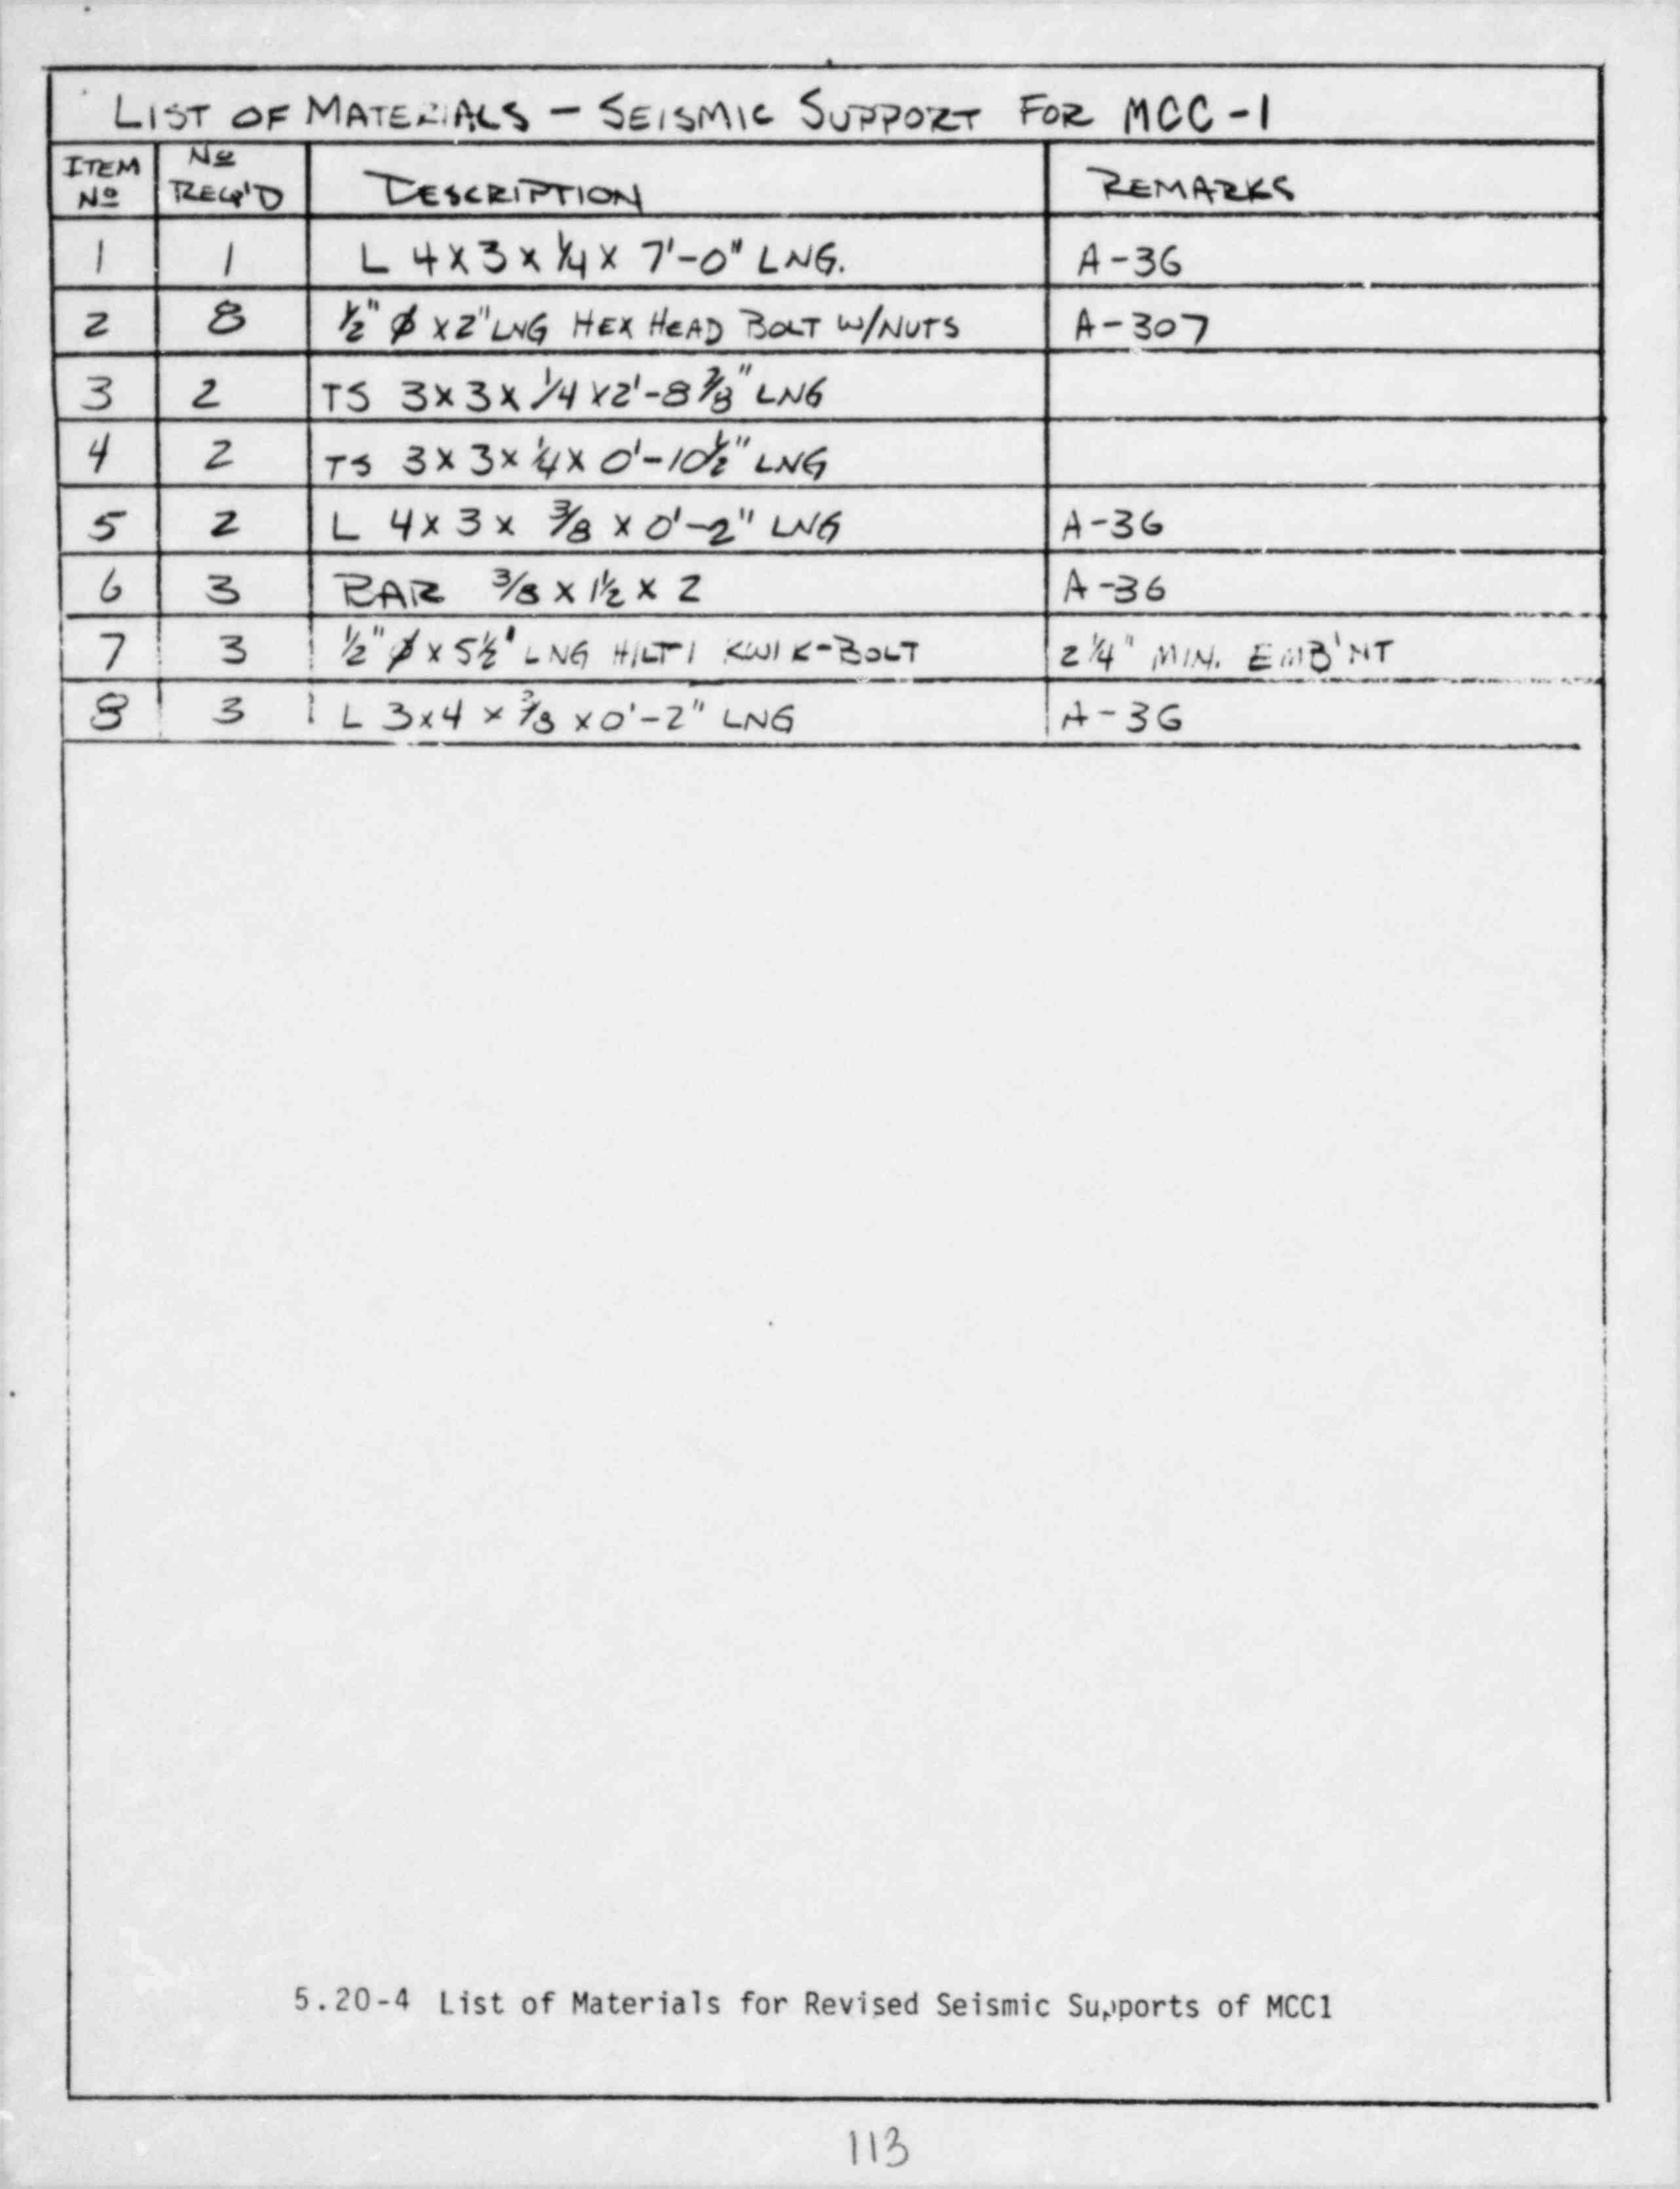 LIST OF MATERIALS - SEISMIC SUPPORT FOR MCC-1
ITEM Nº Nº REQ'D DESCRIPTION REMARKS
1 1 L 4 x 3 x 1/4 x 7'-0" LNG. A-36
2 8 1/2" ϕ x 2" LNG HEX HEAD BOLT W/NUTS A-307
3 2 TS 3 x 3 x 1/4 x 2'-8 7/8" LNG
4 2 TS 3 x 3 x 1/4 x 0'-10 1/2" LNG
5 2 L 4 x 3 x 3/8 x 0'-2" LNG A-36
6 3 BAR 3/8 x 1 1/2 x 2 A-36
7 3 1/2" ϕ x 5 1/2" LNG HILTI KWIK-BOLT 2 1/4" MIN. EMB'NT
8 3 L 3 x 4 x 3/8 x 0'-2" LNG A-36
5.20-4 List of Materials for Revised Seismic Supports of MCC1
113